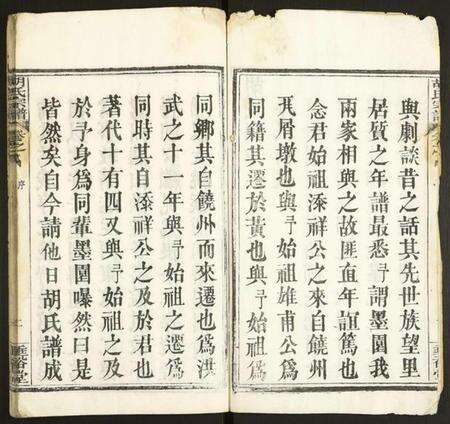 與劇談昔之話其先世族望里
居質之年譜最悉予謂墨園我
兩家相與之故匪直年誼篤也
念君始祖添祥公之來自饒州
瓦屑墩也與予始祖雄甫公爲
同籍其遷於黃也與予始祖爲
同鄉其自饒州而來遷也爲洪
武之十一年與予始祖之遷爲
同時其自添祥公之及於君也
著代十有四又與予始祖之及
於予身爲同輩墨園曝然曰是
皆然矣自今請他日胡氏譜成
胡氏宗譜
序
垂裕堂